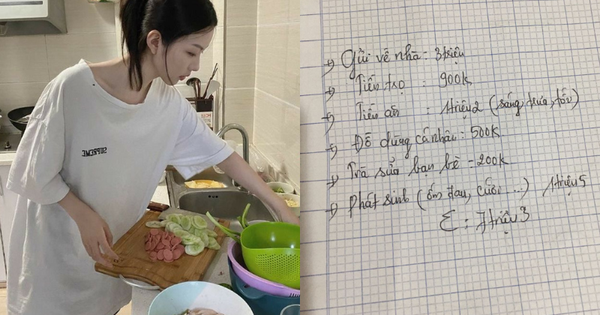 Gửi về nhà : 3 triệu
Tiền trọ : 900k
Tiền ăn : 1triệu2 (sáng trưa, tối)
Đồ dùng cá nhân : 500K
Trà sữa bạn bè = 200K
Phát sinh (ốm đau, cưới ...) 1triệu5
Σ : 7triệu3